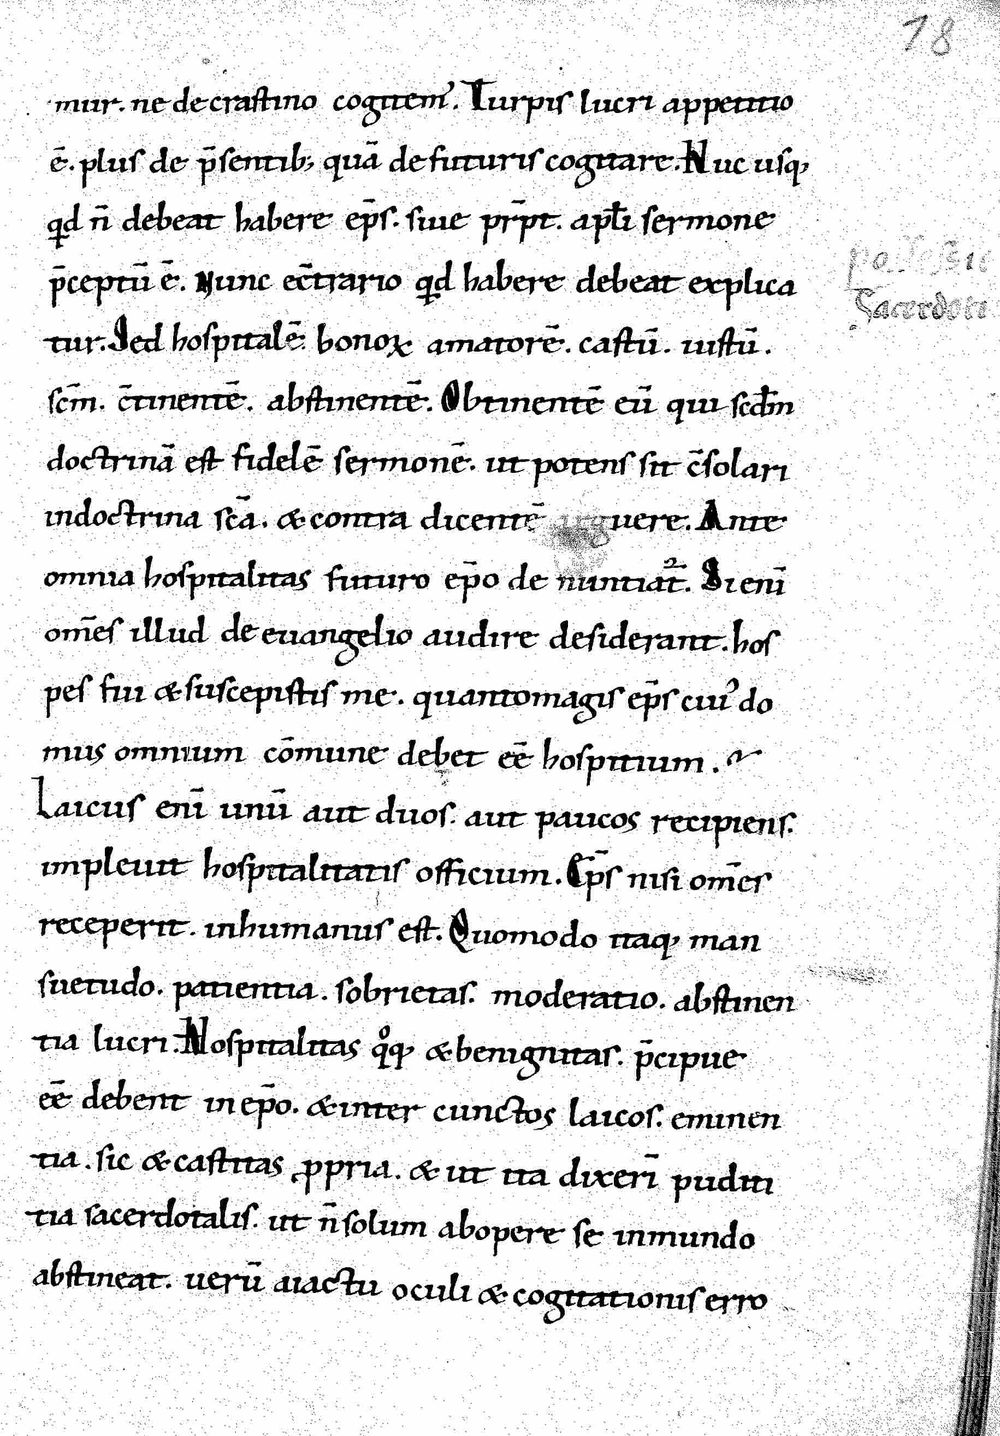 18
mur. ne de crastino cogitem᾽. Turpis lucri appetitio
ē. plus de p̄sentib; quā de futuris cogitare. Nuc usq;
qd n̄ debeat habere ep̄s. siue pr̄pt. apl̄i sermone
p̄ceptū ē. Nunc ec̄trario qd habere debeat explica
tur. Sed hospitalē. bonoꝝ amatorē. castū. iustū.
sc̄m. c̄tinentē. abstinentē. Obtinentē eū qui scdm̄
doctrinā est fidelē sermonē. ut potens sit c̄solari
indoctrina sc̄a. & contra dicentē arguere. Ante
omnia hospitalitas futuro ep̄o de nuntiat᷑. Si enī
om̄es illud de euangelio audire desiderant. hos
pes fui & suscepistis me. quantomagis ep̄s cui᾽ do
mus omnium cōmune debet eē hospitium.
Laicus enī unū aut duos. aut paucos recipiens.
impleuit hospitalitatis officium. Ep̄s nisi om̄es
receperit. inhumanus est. Quomodo itaq; man
suetudo. patientia. sobrietas. moderatio. abstinen
tia lucri. Hospitalitas qͦq; & benignitas. p̄cipue
eē debent in ep̄o. & inter cunctos laicos. eminen
tia. sic & castitas ꝓpria. & ut ita dixerī puditi
tia sacerdotalis. ut n̄ solum abopere se inmundo
abstineat. uerū aiactu oculi & cogitationis erro
Sacerdoti